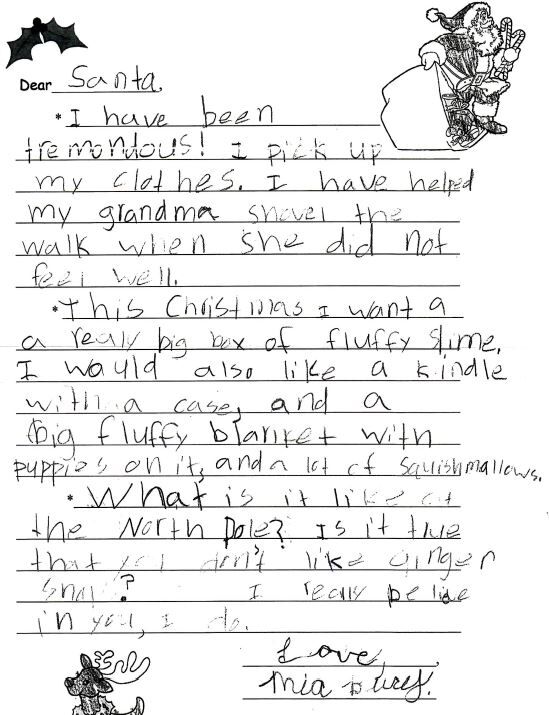 Dear Santa,
* I have been
tremondous! I pick up
my clothes. I have helped
my grandma shovel the
walk when she did not
feel well.
* This Christmas I want a
a realy big box of fluffy slime.
I would also like a kindle
with a case, and a
big fluffy blanket with
puppies on it, and a lot of squishmallows.
* What is it like at
the North Pole? Is it true
that you don't like ginger
snaps? I really belive
in you, I do.
Love,
Mia